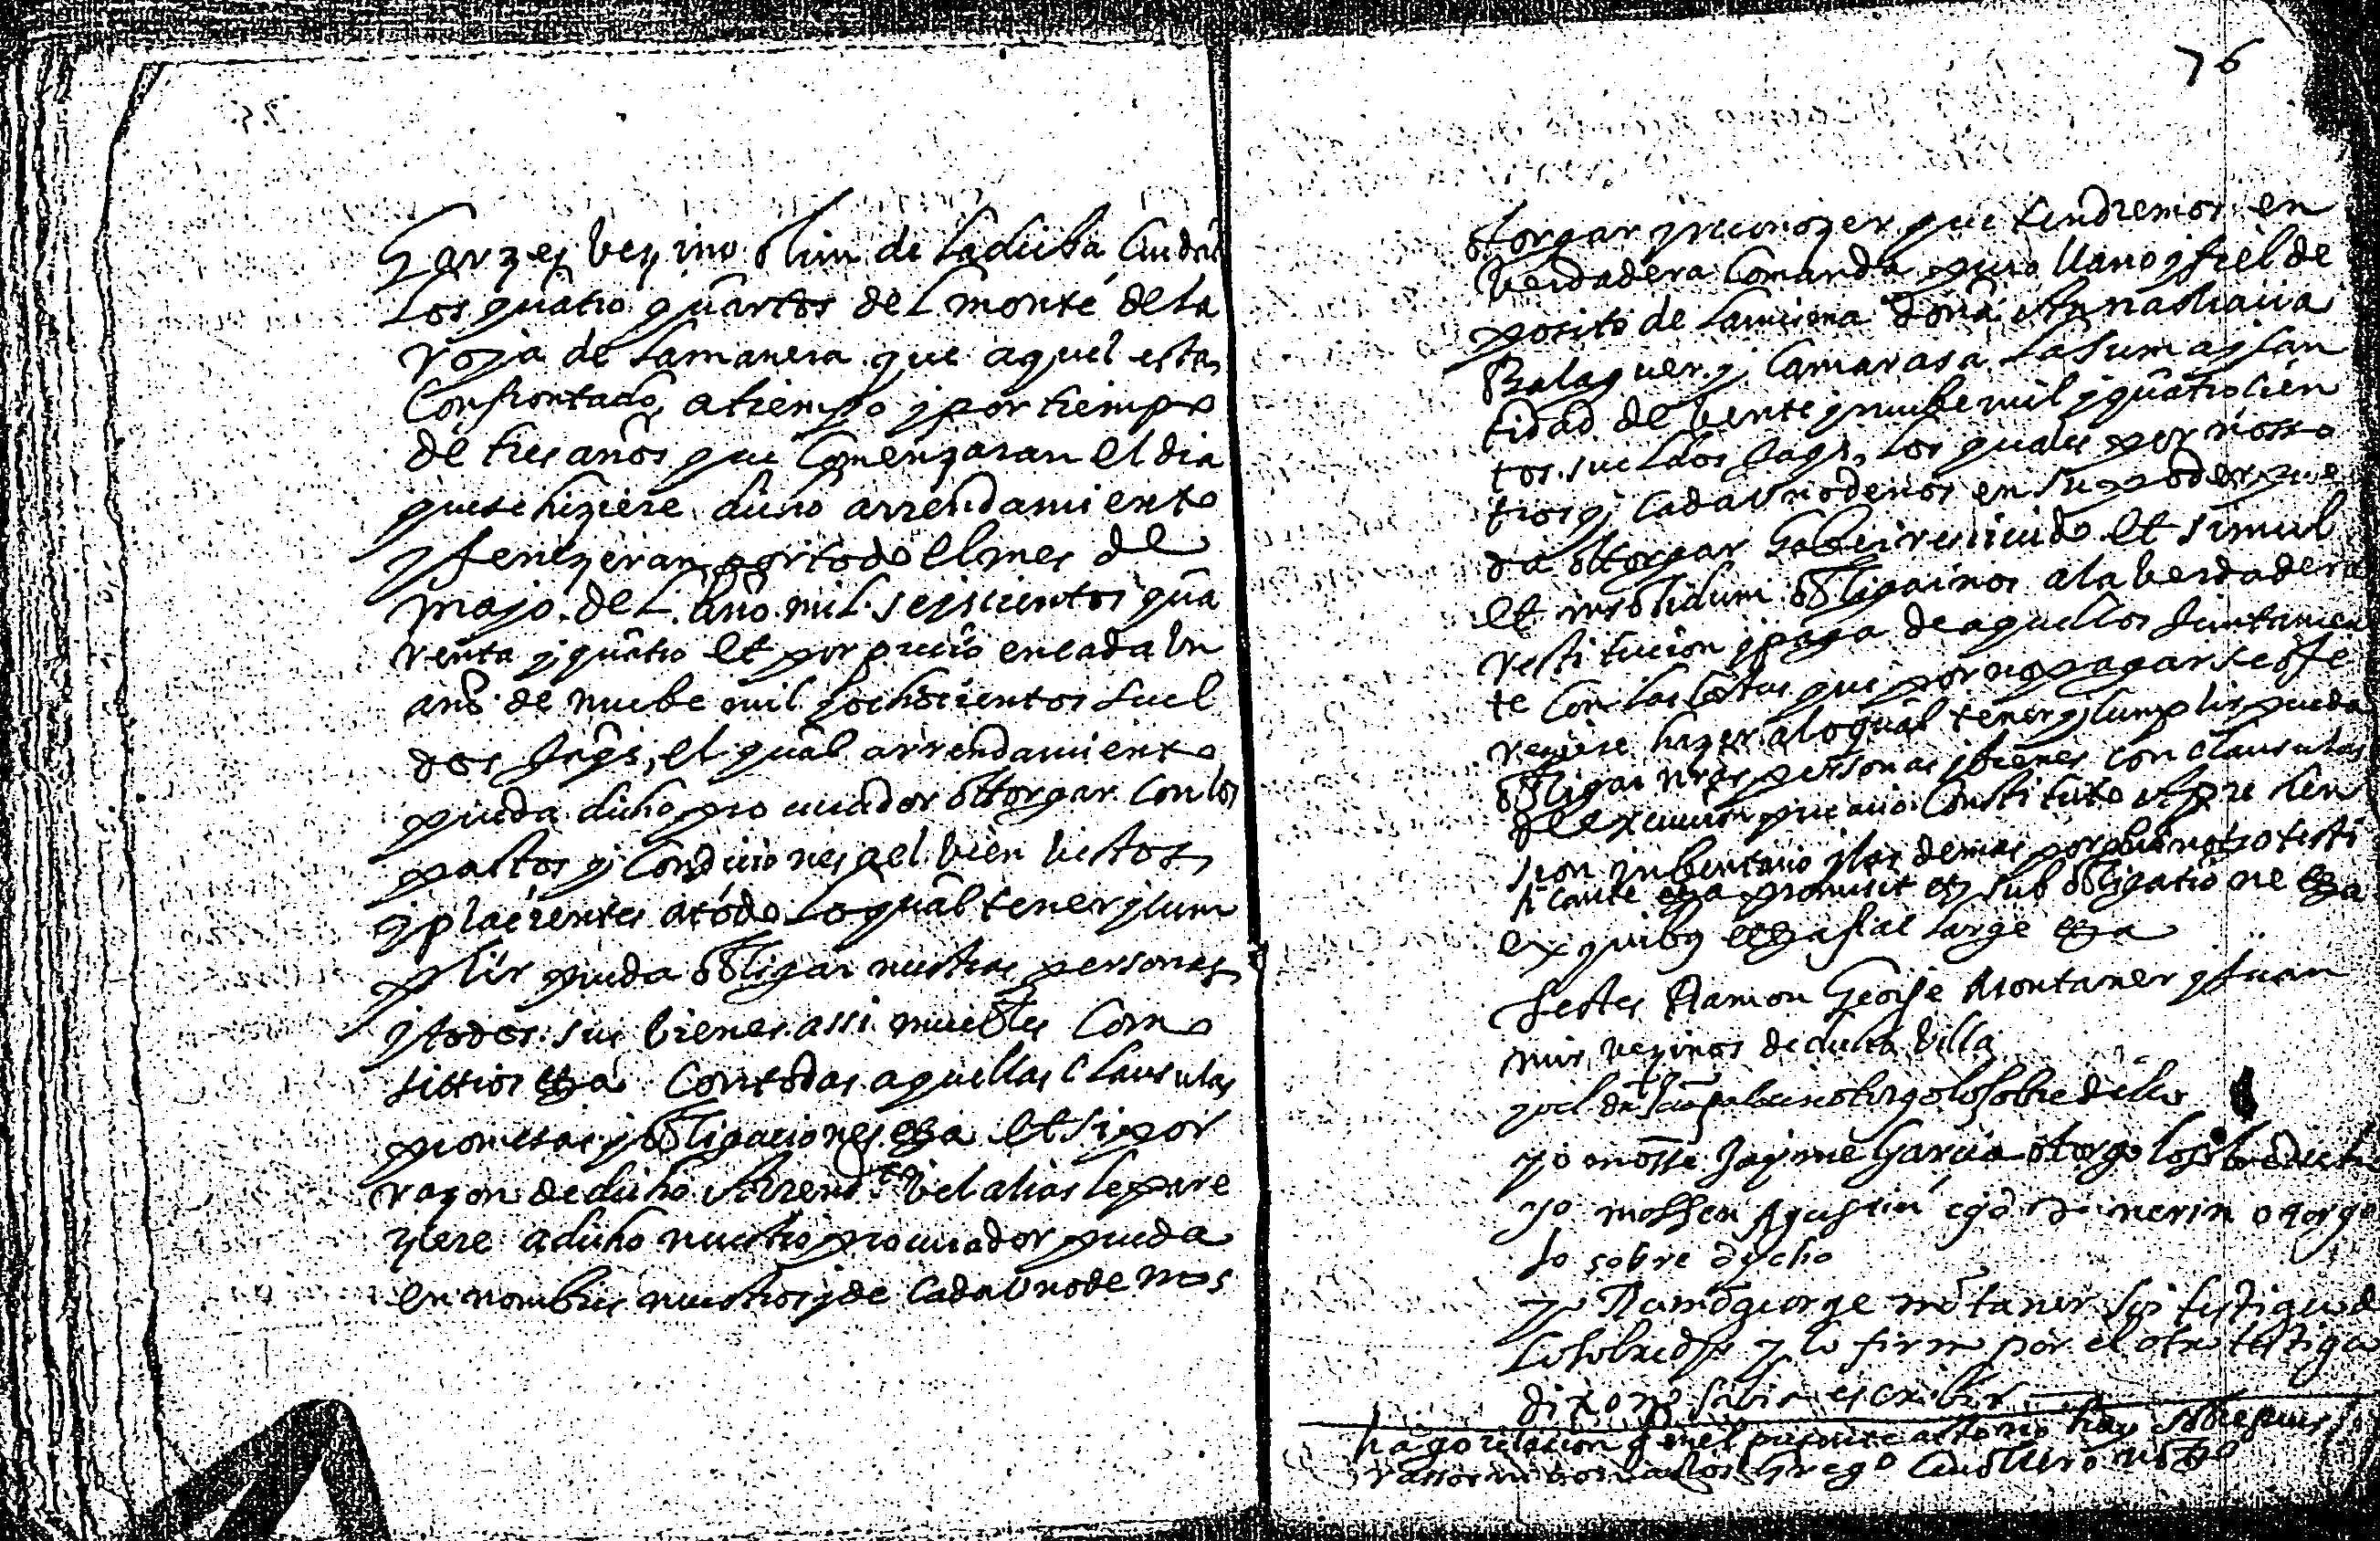 Garzez vezino olim de la dicha Ciudad
Los quatro quartos del monte de la
roza de la manera que aquel esta
Confrontado, a tiempo y por tiempo
de tres años que Comenzaran el dia
que se hiziere dicho arrendamiento
y fenezeran por todo el mes de
mayo del año mil seiscientos qua
renta y quatro et por precio en cada un
año de nuebe mil y ochocientos suel
dos Jaqs, el qual arrendamiento
pueda dicho procurador ottorgar con los
pactos y Condiciones a el bien vistos
y plaçientes a todo lo qual tener y cum
plir pueda obligar nuestras personas
y todos sus bienes assi muebles Como
sittios etza Con todas aquellas Clausulas
promesas y obligaciones etza et si por
razon de dicho Arrend.to vel alias le pare
ziere a dicho nuestro procurador pueda
en nombres nuestros y de cada uno de nos
76
otorgar y reconozer que tendremos en
verdadera Comanda puro llano y fiel de
posito de la misma Doña Anna
Balaguer y Camarasa la suma y can
tidad de vente y nuebe mil y quatrocien
tos sueldos Jaqs, los quales por nosso
tros y cada uno de nos en su poder pue
da ottorgar haber recivido et simul
et insolidum obligarnos a la verdadera
restitucion y paga de aquellos Juntamen
te Con las costas que por no pagar se ofre
reciere hazer a lo qual tener y cumplir pueda
obligar nras personas y bienes con clausulas
de execucion precario Constituto Apre hen
sion inbentario y las demas por notro testi
ficante etza promisit etz sub obligatione etza
ex quibus etza fiat large etza
Testes Ramon George Montaner y Juan
vezinos de dicha Villa
yo el otorgo lo sobre dicho
yo mosse Jayme Garcia otorgo lo sobre dicho
yo mossen Agustin de nerin otorgo
lo sobre dycho
yo Ramō george mōtaner soi testigo de
lo sobredho y lo firm por el otro testigo
dixo no sabia escribir
hago relacion q en el presente acto no hay sobrepues